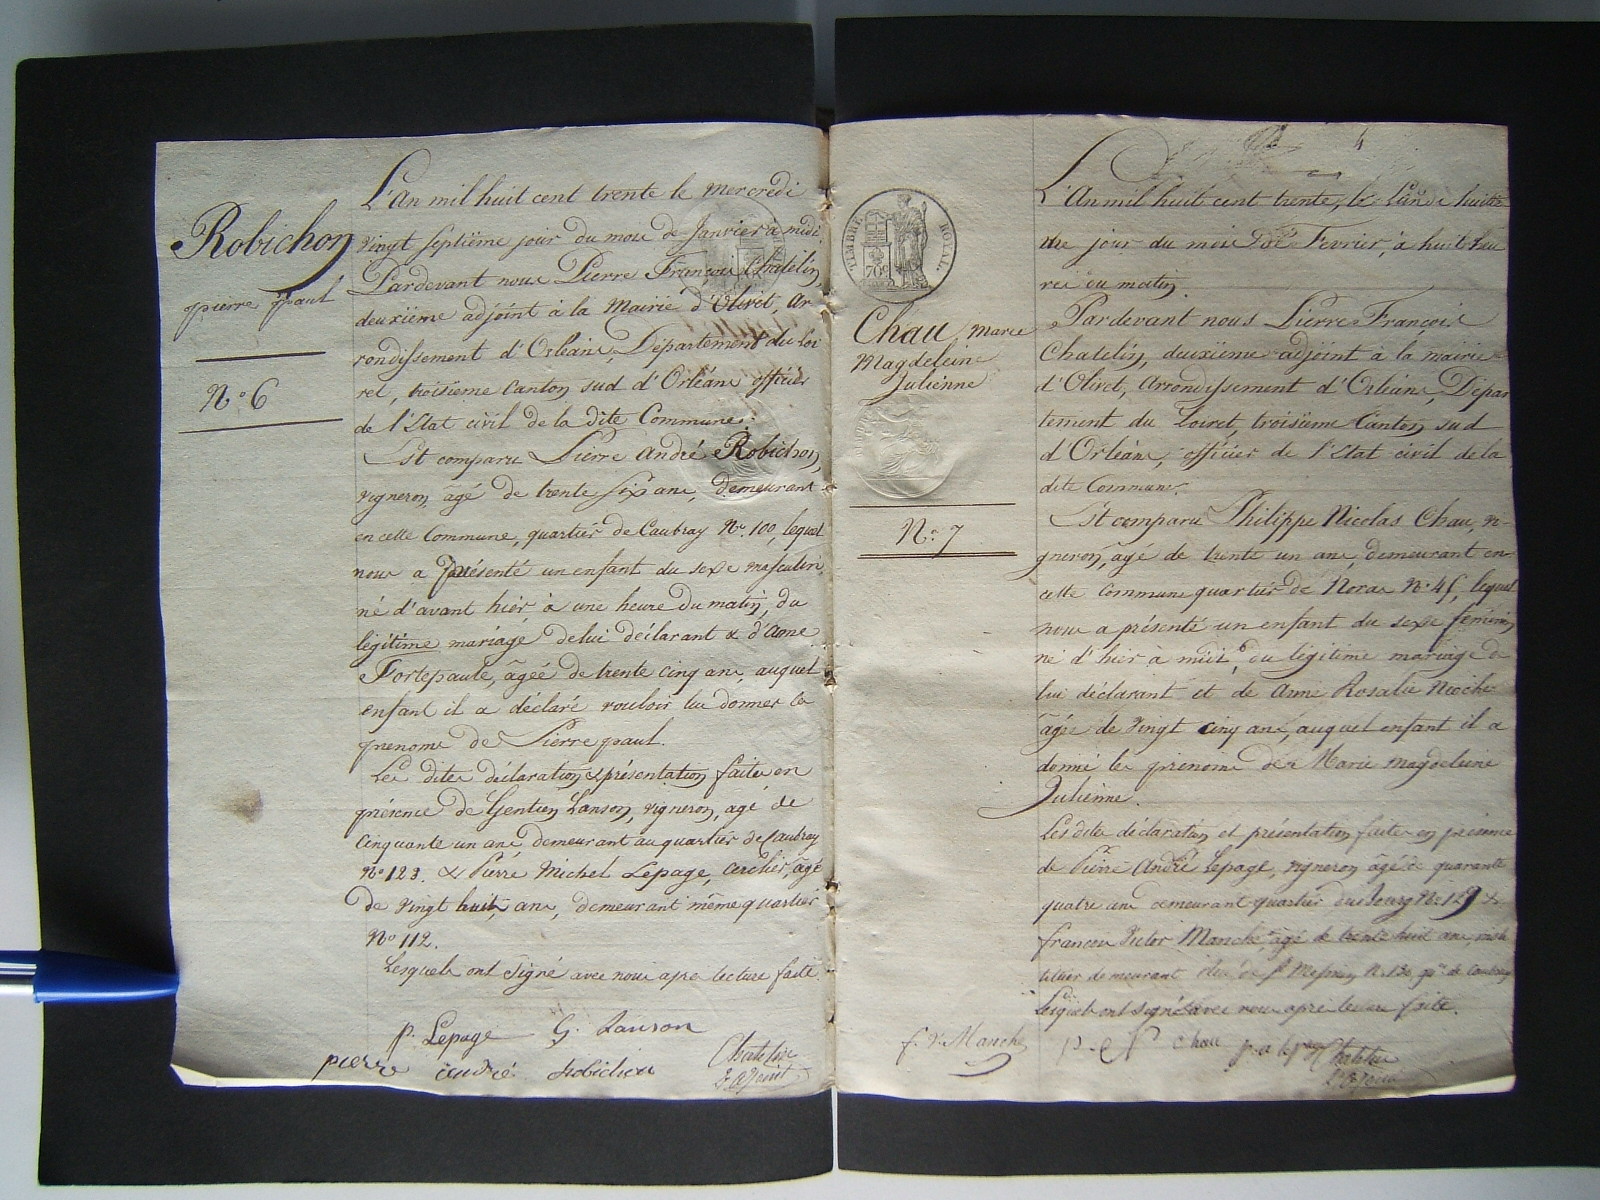 Robichon
pierre paul
N° 6
L'An mil huit cent trente le mercredi
vingt septième jour du mois de Janvier à midi
Pardevant nous Pierre François Chatelin,
deuxième adjoint à la Mairie d'Olivet, Ar
rondissement d'Orléans, Département du Loi
ret, troisième Canton sud d'Orléans officier
de l'Etat civil de la dite Commune:
Est comparu Pierre André Robichon,
vigneron, âgé de trente six ans, demeurant
en cette Commune, quartier de Caubray N° 100, lequel
nous a présenté un enfant du sexe masculin,
né d'avant hier à une heure du matin, du
légitime mariage de lui déclarant & d'Anne
Fortepaule, âgée de trente cinq ans, auquel
enfant il a déclaré vouloir lui donner les
prenoms de Pierre paul.
Les dites déclaration & présentation faites en
présence de Gentien Lanson, vigneron, agé de
Cinquante un ans, demeurant au quartier de Caubray
N° 123. & Pierre Michel Lepage, cerclier, âgé
de vingt huit ans, demeurant même quartier
N° 112.
Lesquels ont signé avec nous aprs lecture faite.
p. Lepage G. Lanson
pierre andré Robichon
Chatelin
2e Adjoint
4
TIMBRE ROYAL
70c
Chau, marie
Magdeleine
Julienne
N° 7
L'An mil huit cent trente, le Lundi huitiè
me jour du mois de Fevrier, à huit heu
res du matin.
Pardevant nous Pierre François
Chatelin, deuxième adjoint à la mairie
d'Olivet, Arrondissement d'Orléans, Dépar
tement du Loiret, troisième Canton sud
d'Orléans, officier de l'Etat civil de la
dite Commune.
Est comparu Philippe Nicolas Chau, vi-
gneron, agé de trente un ans, demeurant en
cette Commune quartier de Noras N° 45, lequel
nous a présenté un enfant du sexe féminin
né d'hier à midi, du légitime mariage de
lui déclarant et de Anne Rosalie Nioche
âgée de vingt cinq ans, auquel enfant il a
donné les prénoms de Marie Magdeleine
Julienne.
Les dites déclaration et présentation faites en présence
de Pierre André Lepage, vigneron âgé de quarante
quatre ans demeurant quartier du Bourg N° 129 &
françois Victor Manche, âgé de trente huit ans, insti
tuteur demeurant de St Mesmin N° 130 qer de Caubray
Lesquels ont signé avec nous aprs lecture faite.
f. V. Manche
p. N chau
p. a lepage
Chatelin
2e Adjoint